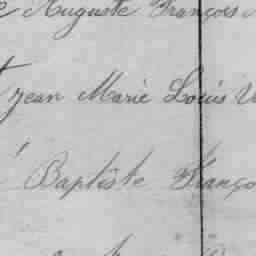 Auguste François
Jean Marie Louis
Baptiste Franço